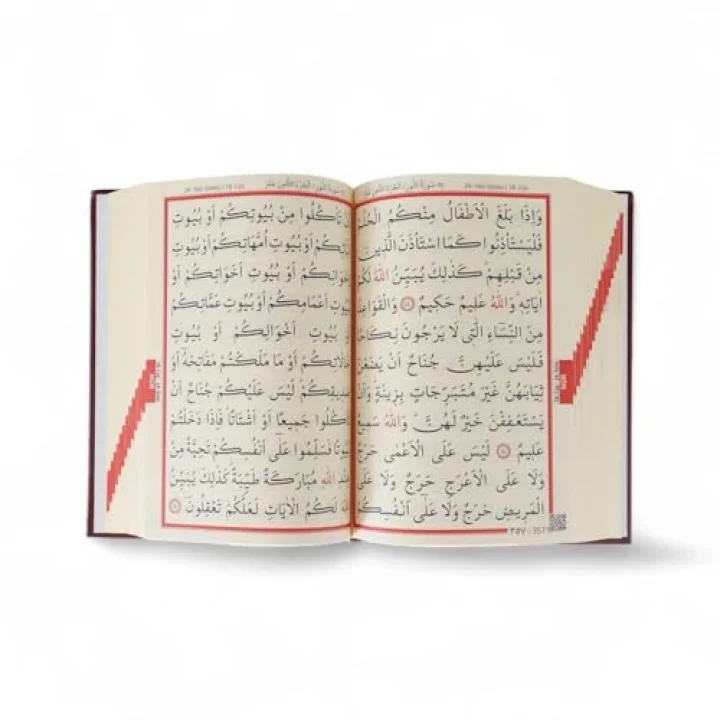 24- Nûr Sûresi / 18. Cüz
وَاِذَا بَلَغَ الْاَطْفَالُ مِنْكُمُ
فَلْيَسْتَأْذِنُوا كَمَا اسْتَأْذَنَ الَّذ۪ينَ
مِنْ قَبْلِهِمْ كَذٰلِكَ يُبَيِّنُ اللّٰهُ
اٰيَاتِه۪ وَاللّٰهُ عَل۪يمٌ حَك۪يمٌ وَالْقَوَاعِدُ
مِنَ النِّسَٓاءِ الّٰت۪ي لَا يَرْجُونَ نِكَاحًا
فَلَيْسَ عَلَيْهِنَّ جُنَاحٌ اَنْ يَضَعْنَ
ثِيَابَهُنَّ غَيْرَ مُتَبَرِّجَاتٍ بِز۪ينَةٍ وَاَنْ
يَسْتَعْفِفْنَ خَيْرٌ لَهُنَّ وَاللّٰهُ سَم۪يعٌ
عَل۪يمٌ لَيْسَ عَلَى الْاَعْمٰى حَرَجٌ
وَلَا عَلَى الْاَعْرَجِ حَرَجٌ وَلَا عَلَى
الْمَر۪يضِ حَرَجٌ وَلَا عَلٰٓى اَنْفُسِكُمْ
٣٥٧ / 357
24- Nûr Sûresi / 18. Cüz
تَأْكُلُوا مِنْ بُيُوتِكُمْ اَوْ بُيُوتِ
اَوْ بُيُوتِ اُمَّهَاتِكُمْ اَوْ بُيُوتِ
اِخْوَانِكُمْ اَوْ بُيُوتِ اَخَوَاتِكُمْ اَوْ
بُيُوتِ اَعْمَامِكُمْ اَوْ بُيُوتِ عَمَّاتِكُمْ
اَوْ بُيُوتِ اَخْوَالِكُمْ اَوْ بُيُوتِ
خَالَاتِكُمْ اَوْ مَا مَلَكْتُمْ مَفَاتِحَهُٓ اَوْ
صَد۪يقِكُمْ لَيْسَ عَلَيْكُمْ جُنَاحٌ اَنْ
تَأْكُلُوا جَم۪يعًا اَوْ اَشْتَاتًا فَاِذَا دَخَلْتُمْ
بُيُوتًا فَسَلِّمُوا عَلٰٓى اَنْفُسِكُمْ تَحِيَّةً مِنْ
عِنْدِ اللّٰهِ مُبَارَكَةً طَيِّبَةً كَذٰلِكَ يُبَيِّنُ
اللّٰهُ لَكُمُ الْاٰيَاتِ لَعَلَّكُمْ تَعْقِلُونَ